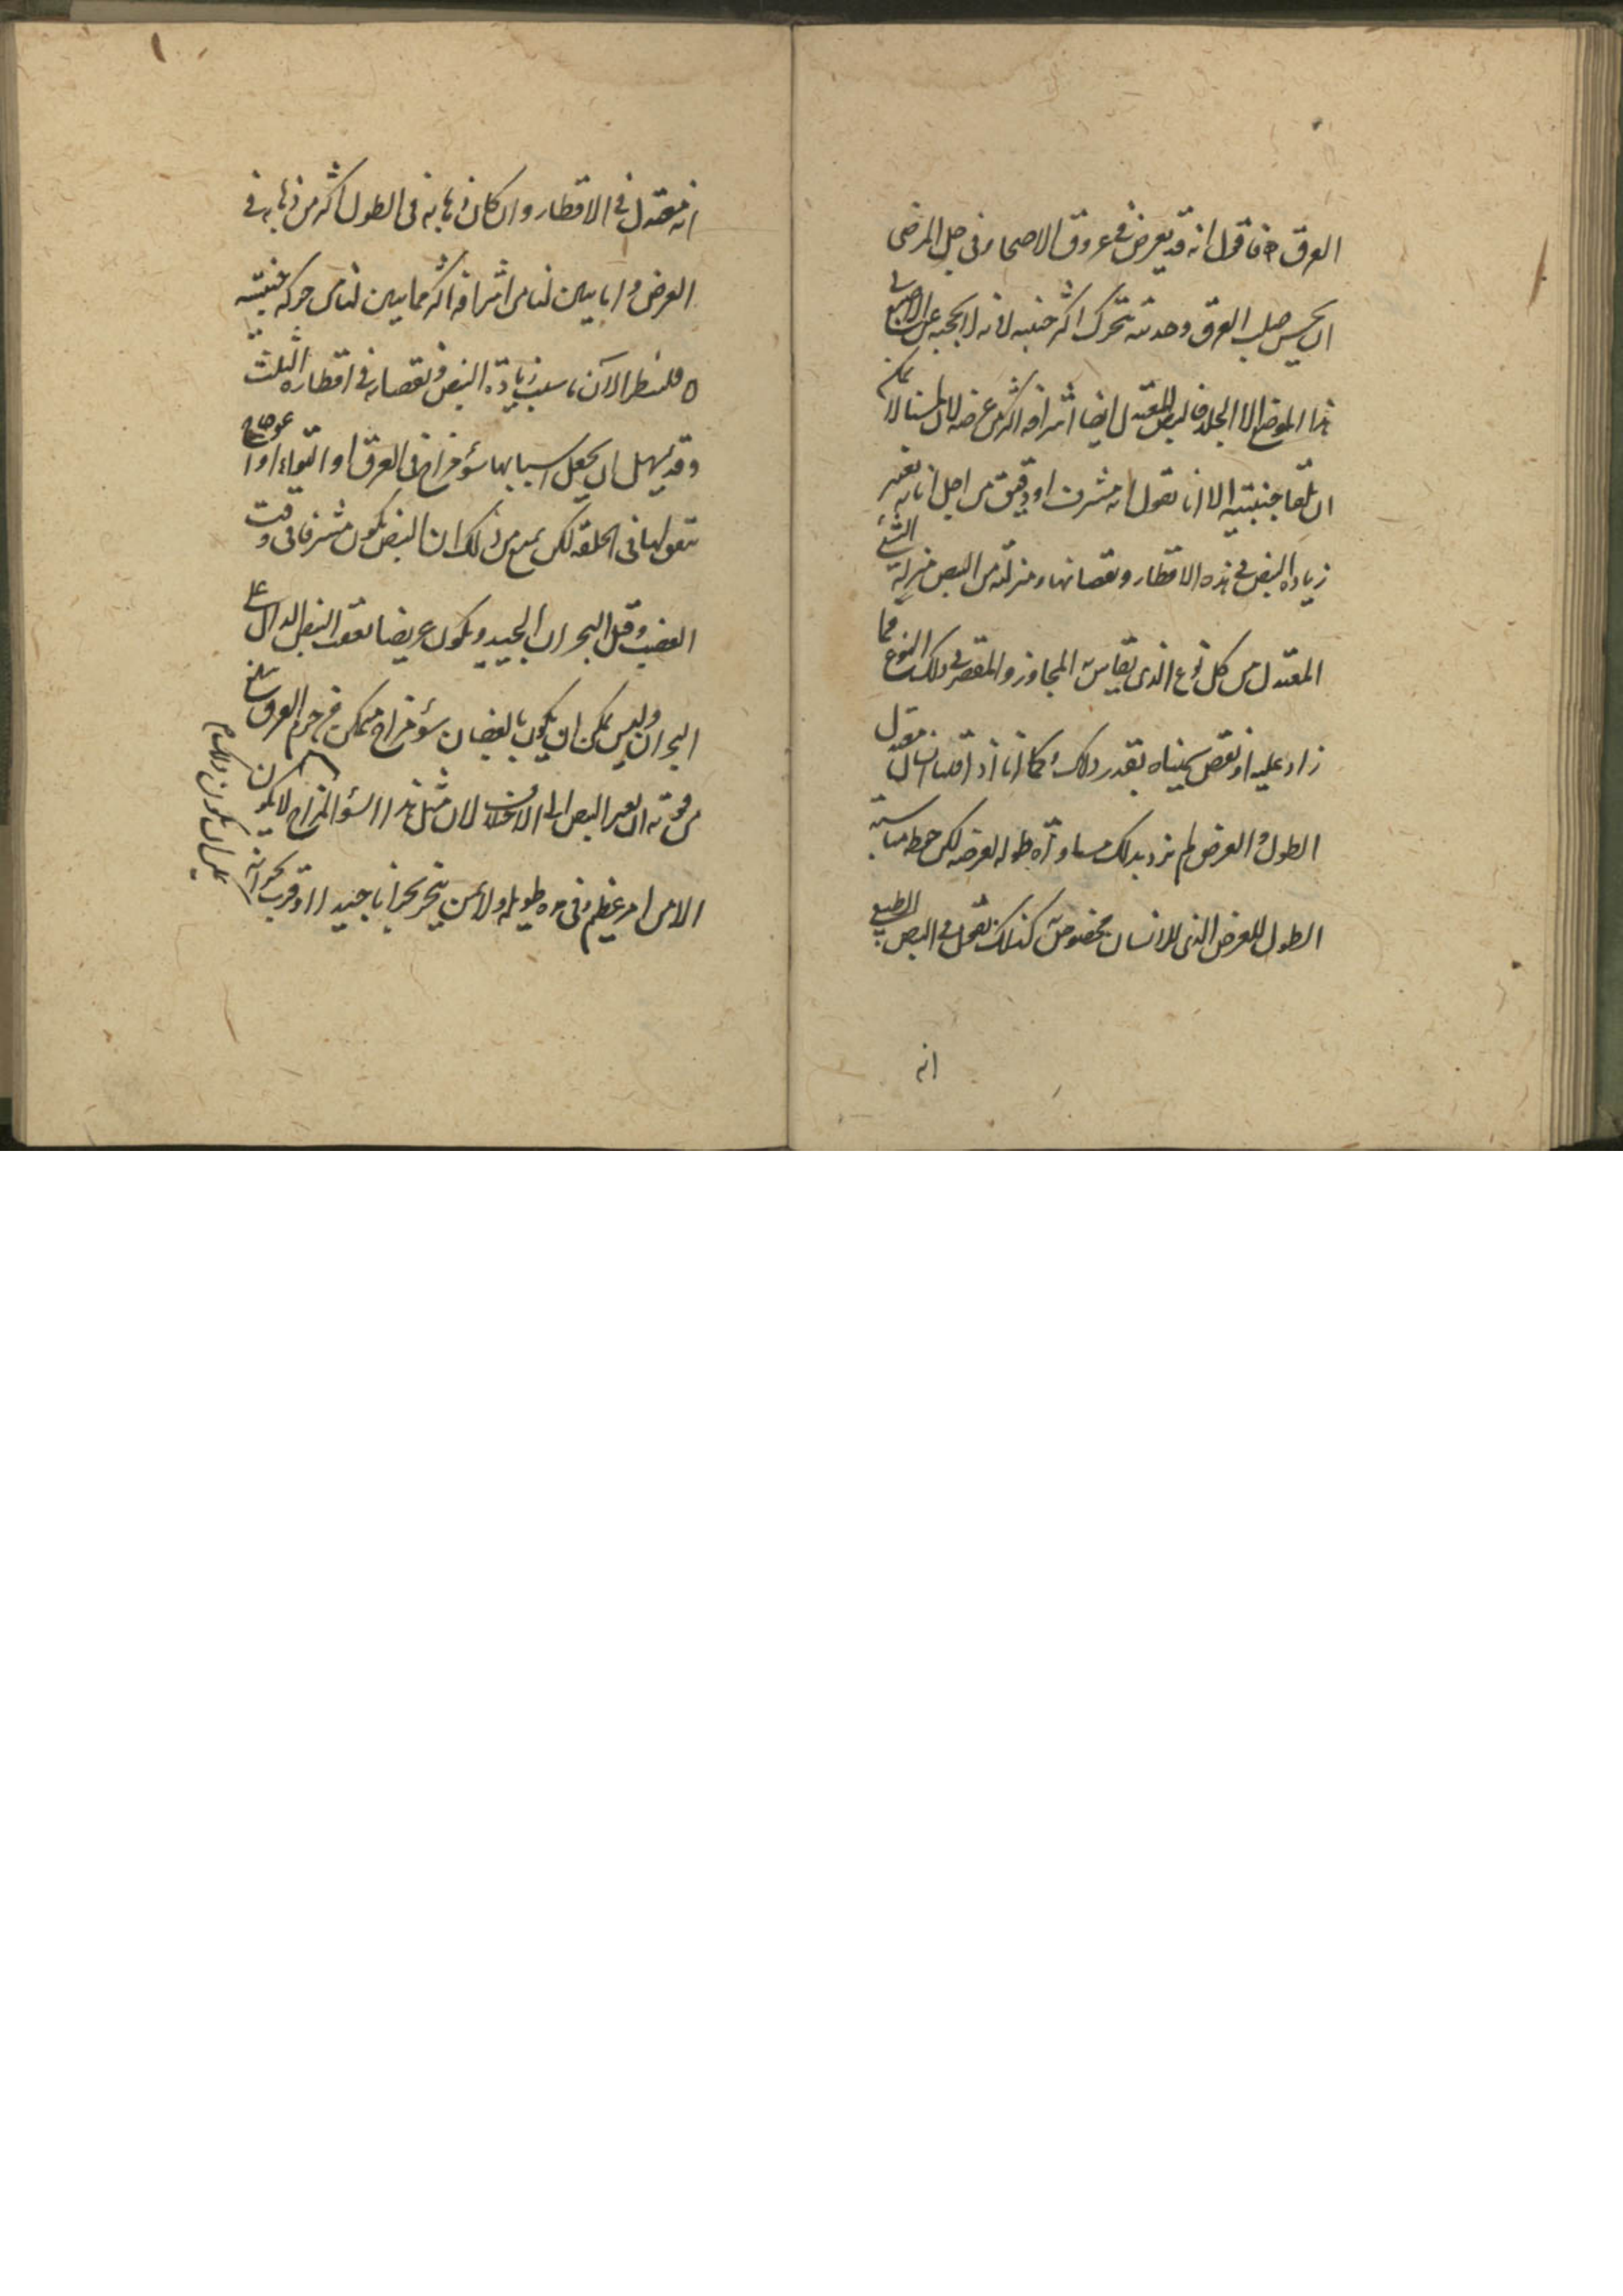 العرق ه فاقول انه قد يعرض في عروق الاصحاء وفي جل المرضى
ان يحس صلب العرق وحدبته تتحرك اكثر جنبيه لانه لا يحجبه عن الاصبع في
هذا الموضع الا الجلد فالنبض المعتدل ايضا اشرافه اكثر من عرضه لان لمسنا لا يمكن
ان يلقا جنبتيه الا انا نقول انه مشرف او دقيق من اجل انا نعتبر
زيادة النبض في هذه الاقطار ونقصانها ومنزلته من النبض منزلة الشئ
المعتدل من كل نوع الذي يقاس به المجاوز والمقصر في ذلك النوع فما
زاد عليه او نقص سميناه بقدر ذلك وكما انا اذا قلنا انسان معتدل
الطول والعرض لم نرد بذلك مساواة طوله لعرضه لكن مناسبة
الطول للعرض الذي للانسان مخصوصة كذلك نقول في النبض الطبيعي
انه
انه معتدل في الاقطار وان كان ذهابه في الطول اكثر من ذهابه في
العرض و انا يبين لنا من اشرافه اكثر مما يبين لنا من حركة جنبتيه
ه فلننظر الآن ما سبب زيادة النبض ونقصانه في اقطاره الثلث
وقد يسهل ان يجعل اسبابها سؤ مزاج في العرق او التواء او اعوجاج
في الخلقة لكن يمنع من ذلك ان النبض يكون مشرفا في وقت
الغضب وقبل البحران الجيد ويكون عريضا بعقب النبض الدال على
البحران وليس يمكن ان يكون بالغضبان سؤ مزاج متمكن في جرم العرق يبلغ
من قوته ان يغير النبض الى الاختلاف لان مثل هذا السؤ المزاج لا يكون
الا من امر عظيم وفي مدة طويلة ولا بمن يتبحر بحرانا جيدا او قرب بحرانه